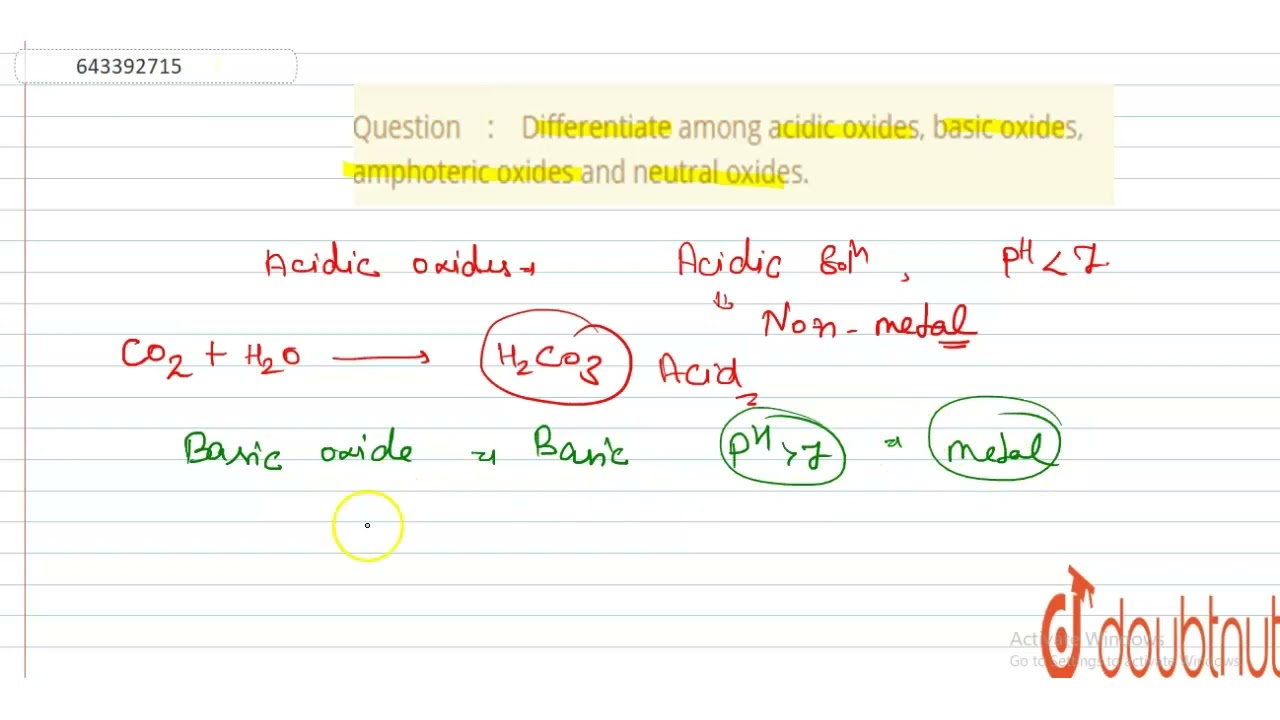 643392715
Question : Differentiate among acidic oxides, basic oxides,
amphoteric oxides and neutral oxides.
Acidic oxides → Acidic Solⁿ, pH < 7
⇓ Non-metal
CO2 + H2O ⟶ H2CO3 Acid
Basic oxide ⇒ Basic pH > 7 ⇒ metal
doubtnut
Activate Windows
Go to Settings to activate Windows.